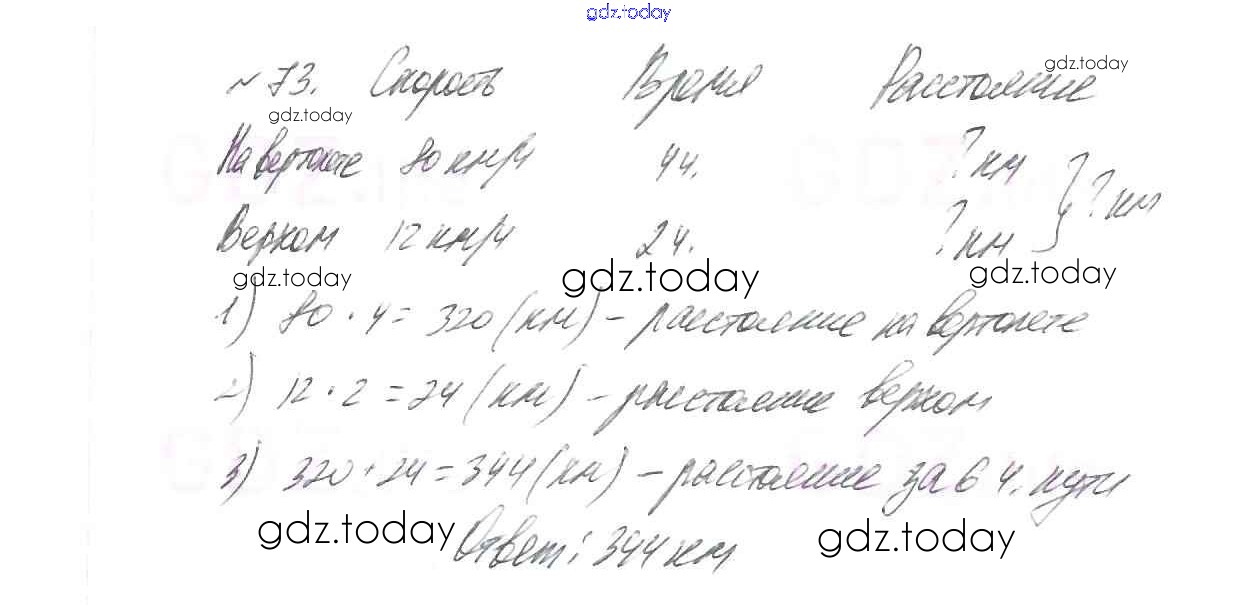 gdz.today
№ 73. Скорость Время Расстояние
gdz.today
gdz.today
На вертолете 80 км/ч 4 ч. ? км
? км
Верхом 12 км/ч 2 ч. ? км
gdz.today gdz.today gdz.today
1) 80 · 4 = 320 (км) – расстояние на вертолете
2) 12 · 2 = 24 (км) – расстояние верхом
3) 320 + 24 = 344 (км) – расстояние за 6 ч. пути
gdz.today gdz.today
Ответ: 344 км